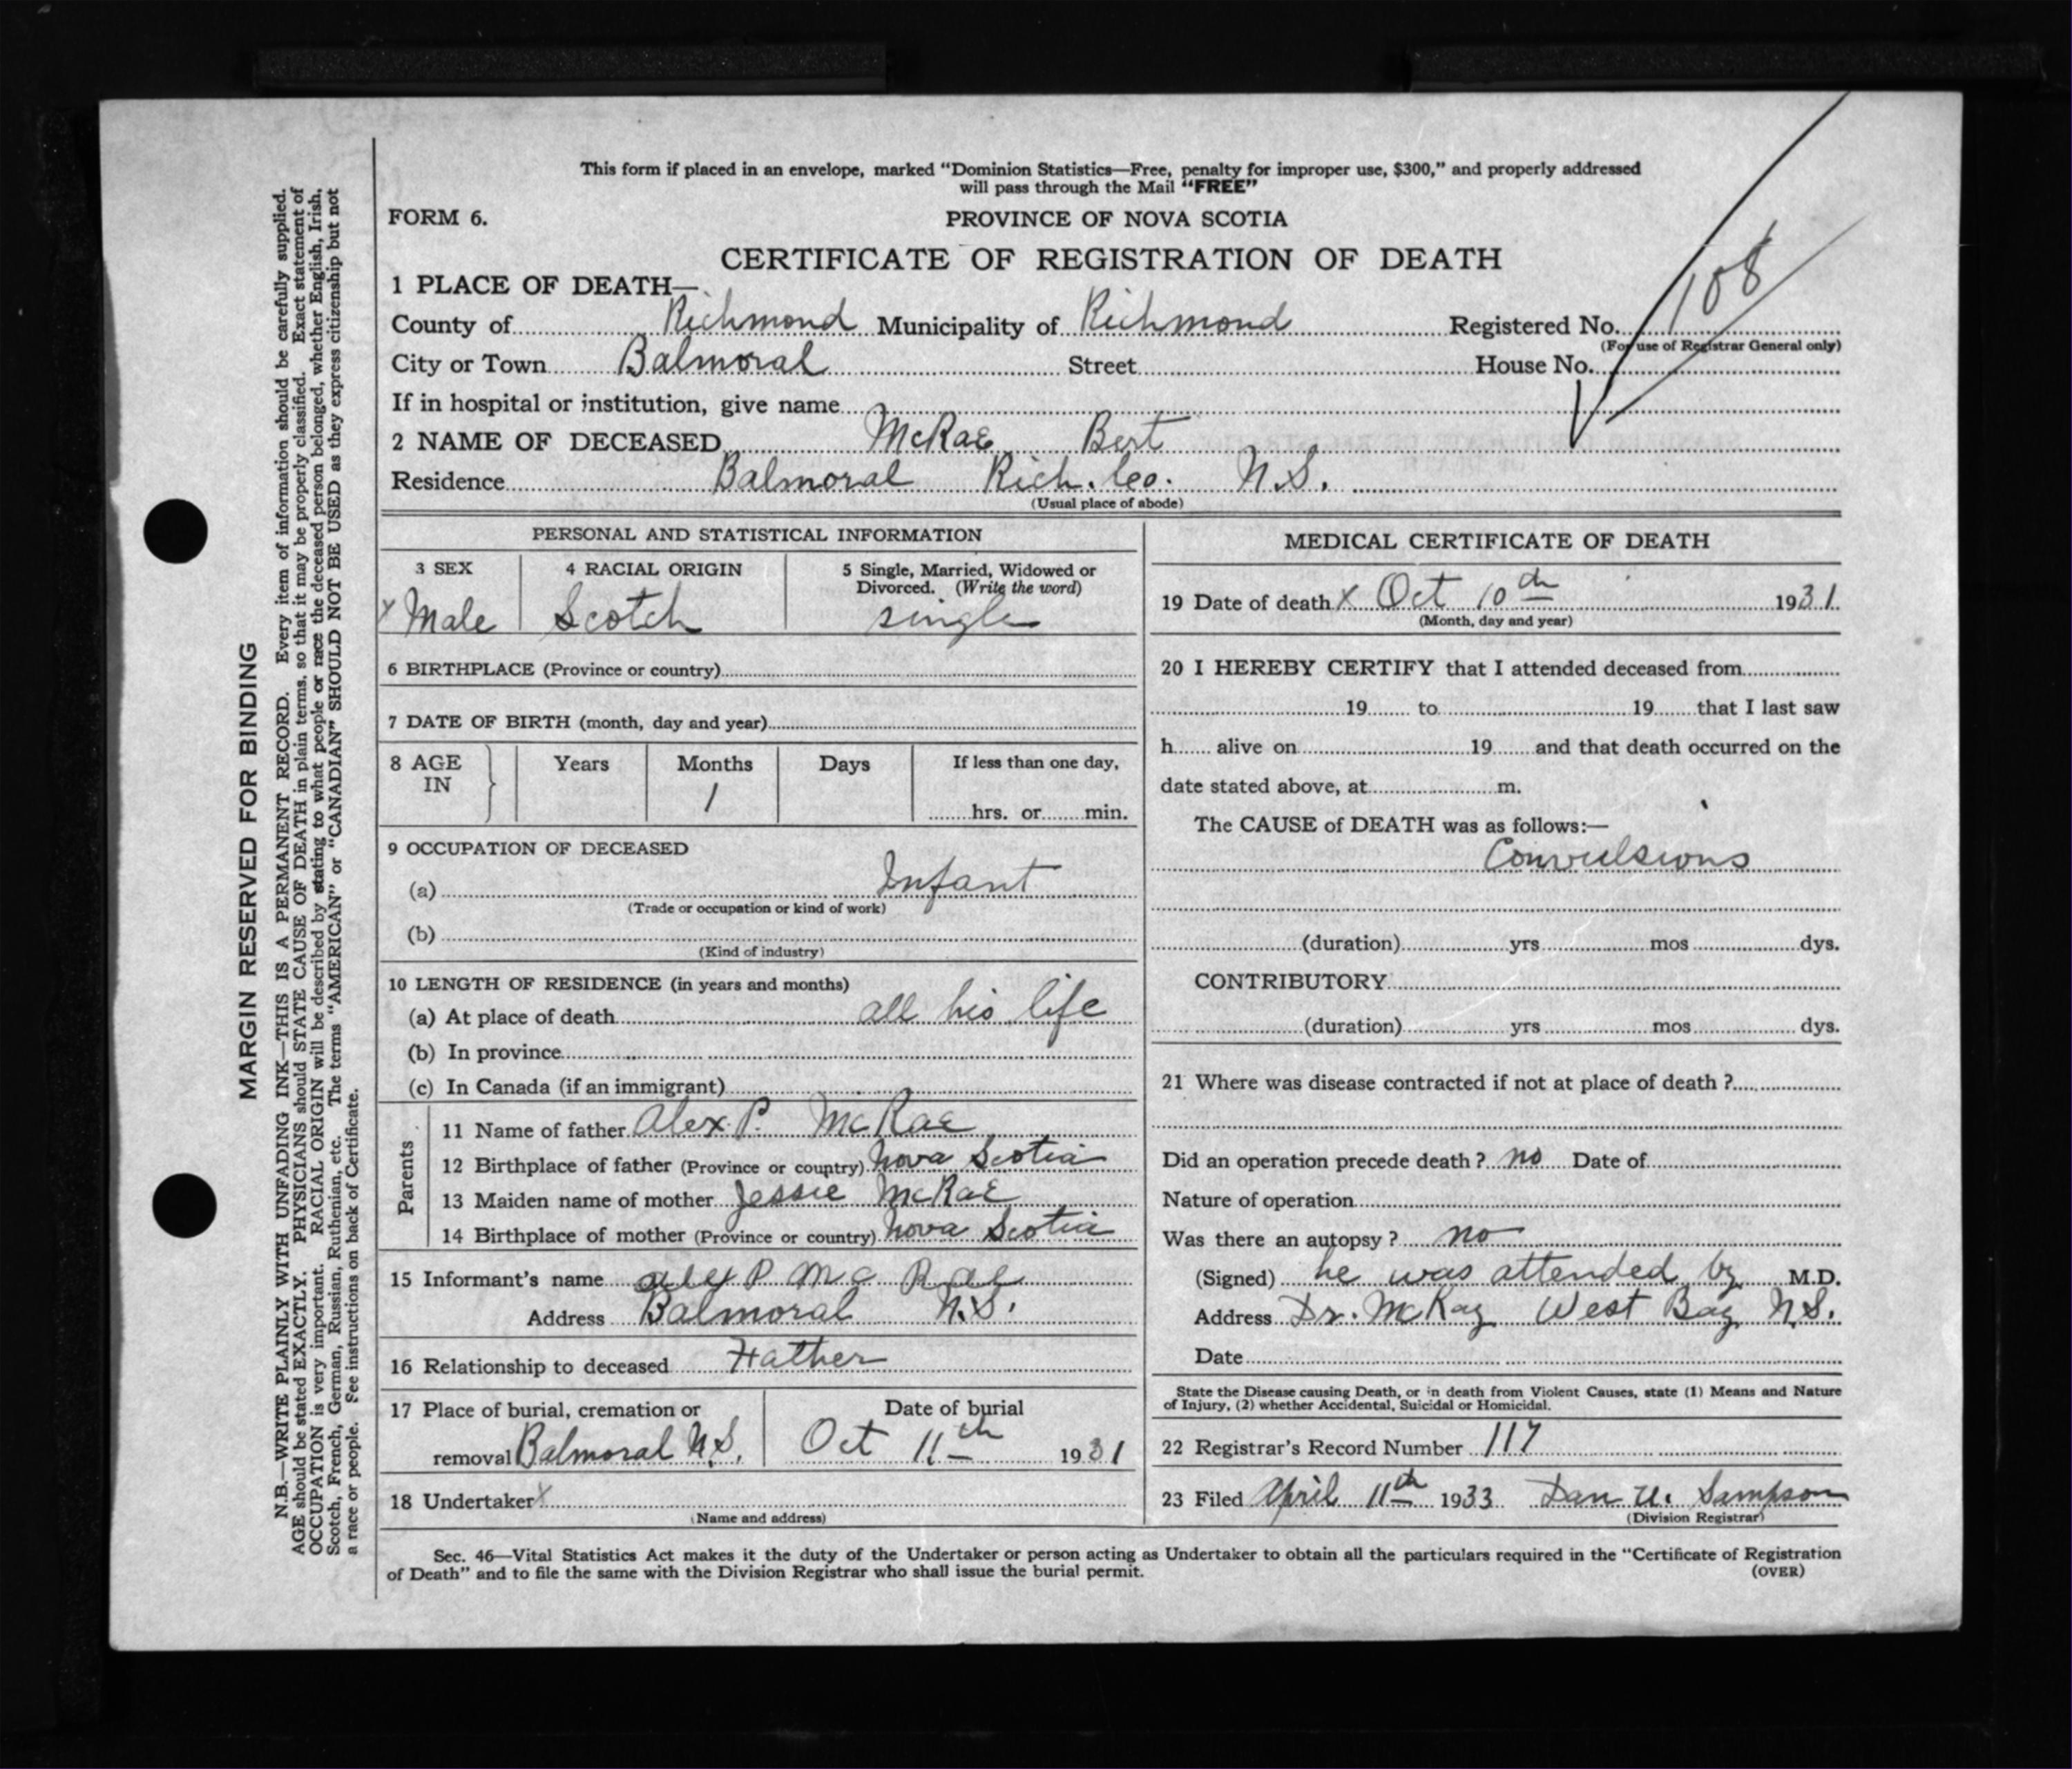 This form if placed in an envelope, marked "Dominion Statistics—Free, penalty for improper use, $300," and properly addressed
will pass through the Mail "FREE"
FORM 6.
PROVINCE OF NOVA SCOTIA
CERTIFICATE OF REGISTRATION OF DEATH
1 PLACE OF DEATH—
County of Richmond Municipality of Richmond Registered No. 108
(For use of Registrar General only)
City or Town Balmoral Street House No.
If in hospital or institution, give name
2 NAME OF DECEASED McRae Bert
Residence Balmoral Rich. Co. N.S.
(Usual place of abode)
PERSONAL AND STATISTICAL INFORMATION
3 SEX 4 RACIAL ORIGIN 5 Single, Married, Widowed or
Divorced. (Write the word)
x Male Scotch single
6 BIRTHPLACE (Province or country)
7 DATE OF BIRTH (month, day and year)
8 AGE Years Months Days If less than one day,
IN 1 hrs. or min.
9 OCCUPATION OF DECEASED
(a) Infant
(Trade or occupation or kind of work)
(b)
(Kind of industry)
10 LENGTH OF RESIDENCE (in years and months)
(a) At place of death all his life
(b) In province
(c) In Canada (if an immigrant)
Parents
11 Name of father Alex. P. McRae
12 Birthplace of father (Province or country) Nova Scotia
13 Maiden name of mother Jessie McRae
14 Birthplace of mother (Province or country) Nova Scotia
15 Informant's name Alex P McRae
Address Balmoral N.S.
16 Relationship to deceased Father
17 Place of burial, cremation or Date of burial
removal Balmoral N.S. Oct 11th 1931
18 Undertaker x
(Name and address)
MEDICAL CERTIFICATE OF DEATH
19 Date of death x Oct 10th 1931
(Month, day and year)
20 I HEREBY CERTIFY that I attended deceased from
19 to 19 that I last saw
h alive on 19 and that death occurred on the
date stated above, at m.
The CAUSE of DEATH was as follows:—
Convulsions
(duration) yrs mos dys.
CONTRIBUTORY
(duration) yrs mos dys.
21 Where was disease contracted if not at place of death ?
Did an operation precede death ? no Date of
Nature of operation
Was there an autopsy ? no
(Signed) he was attended by M.D.
Address Dr. McKay West Bay N.S.
Date
State the Disease causing Death, or in death from Violent Causes, state (1) Means and Nature
of Injury, (2) whether Accidental, Suicidal or Homicidal.
22 Registrar's Record Number 117
23 Filed April 11th 1933 Dan U. Sampson
(Division Registrar)
Sec. 46—Vital Statistics Act makes it the duty of the Undertaker or person acting as Undertaker to obtain all the particulars required in the "Certificate of Registration
of Death" and to file the same with the Division Registrar who shall issue the burial permit.
(OVER)
MARGIN RESERVED FOR BINDING
N.B.—WRITE PLAINLY WITH UNFADING INK—THIS IS A PERMANENT RECORD. Every item of information should be carefully supplied.
AGE should be stated EXACTLY. PHYSICIANS should STATE CAUSE OF DEATH in plain terms, so that it may be properly classified. Exact statement of
OCCUPATION is very important. RACIAL ORIGIN will be described by stating to what people or race the deceased person belonged, whether English, Irish,
Scotch, French, German, Russian, Ruthenian, etc. The terms "AMERICAN" or "CANADIAN" SHOULD NOT BE USED as they express citizenship but not
a race or people. See instructions on back of Certificate.